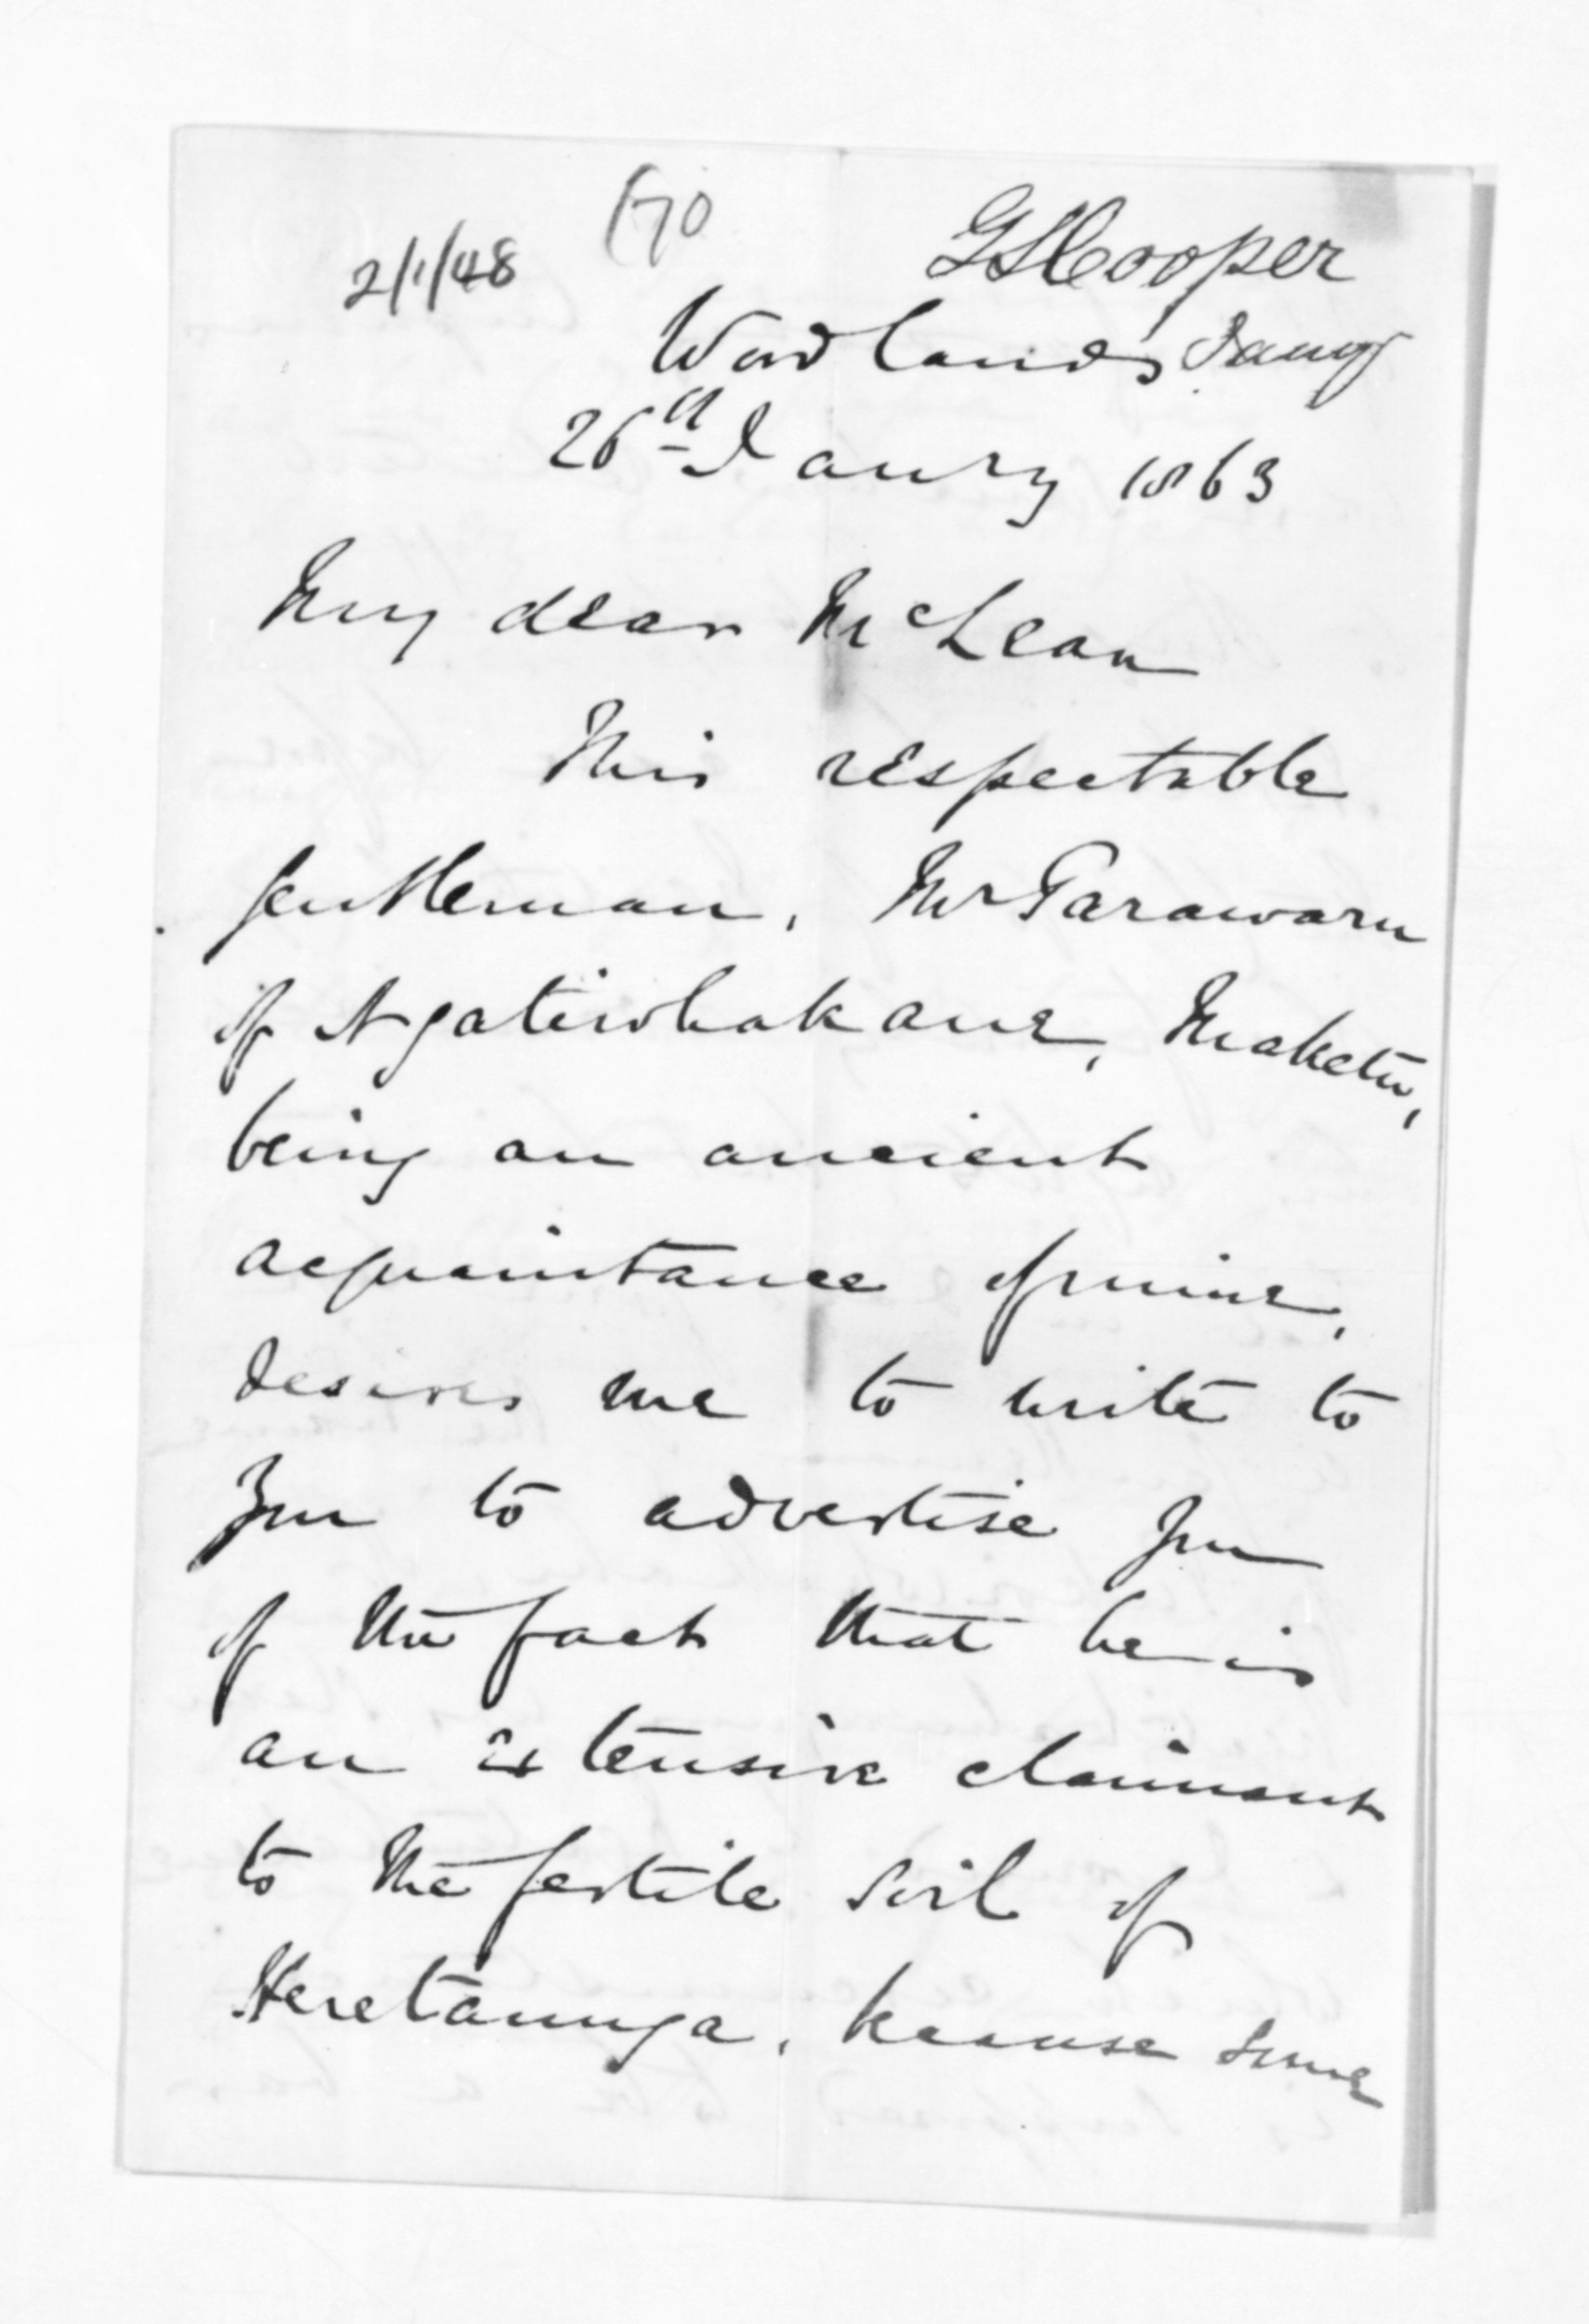 2/1/48 (70 GSCooper
Woodlands
26th Janry 1863
My dear McLean
This respectable
gentleman, Mr Tarawaru
of Ngatiwhakaue, Maketu,
being an ancient
acquaintance of mine,
desires me to write to
you to advertise you
of the fact that he is
an extensive claimant
to the fertile soil of
Heretaunga, because some